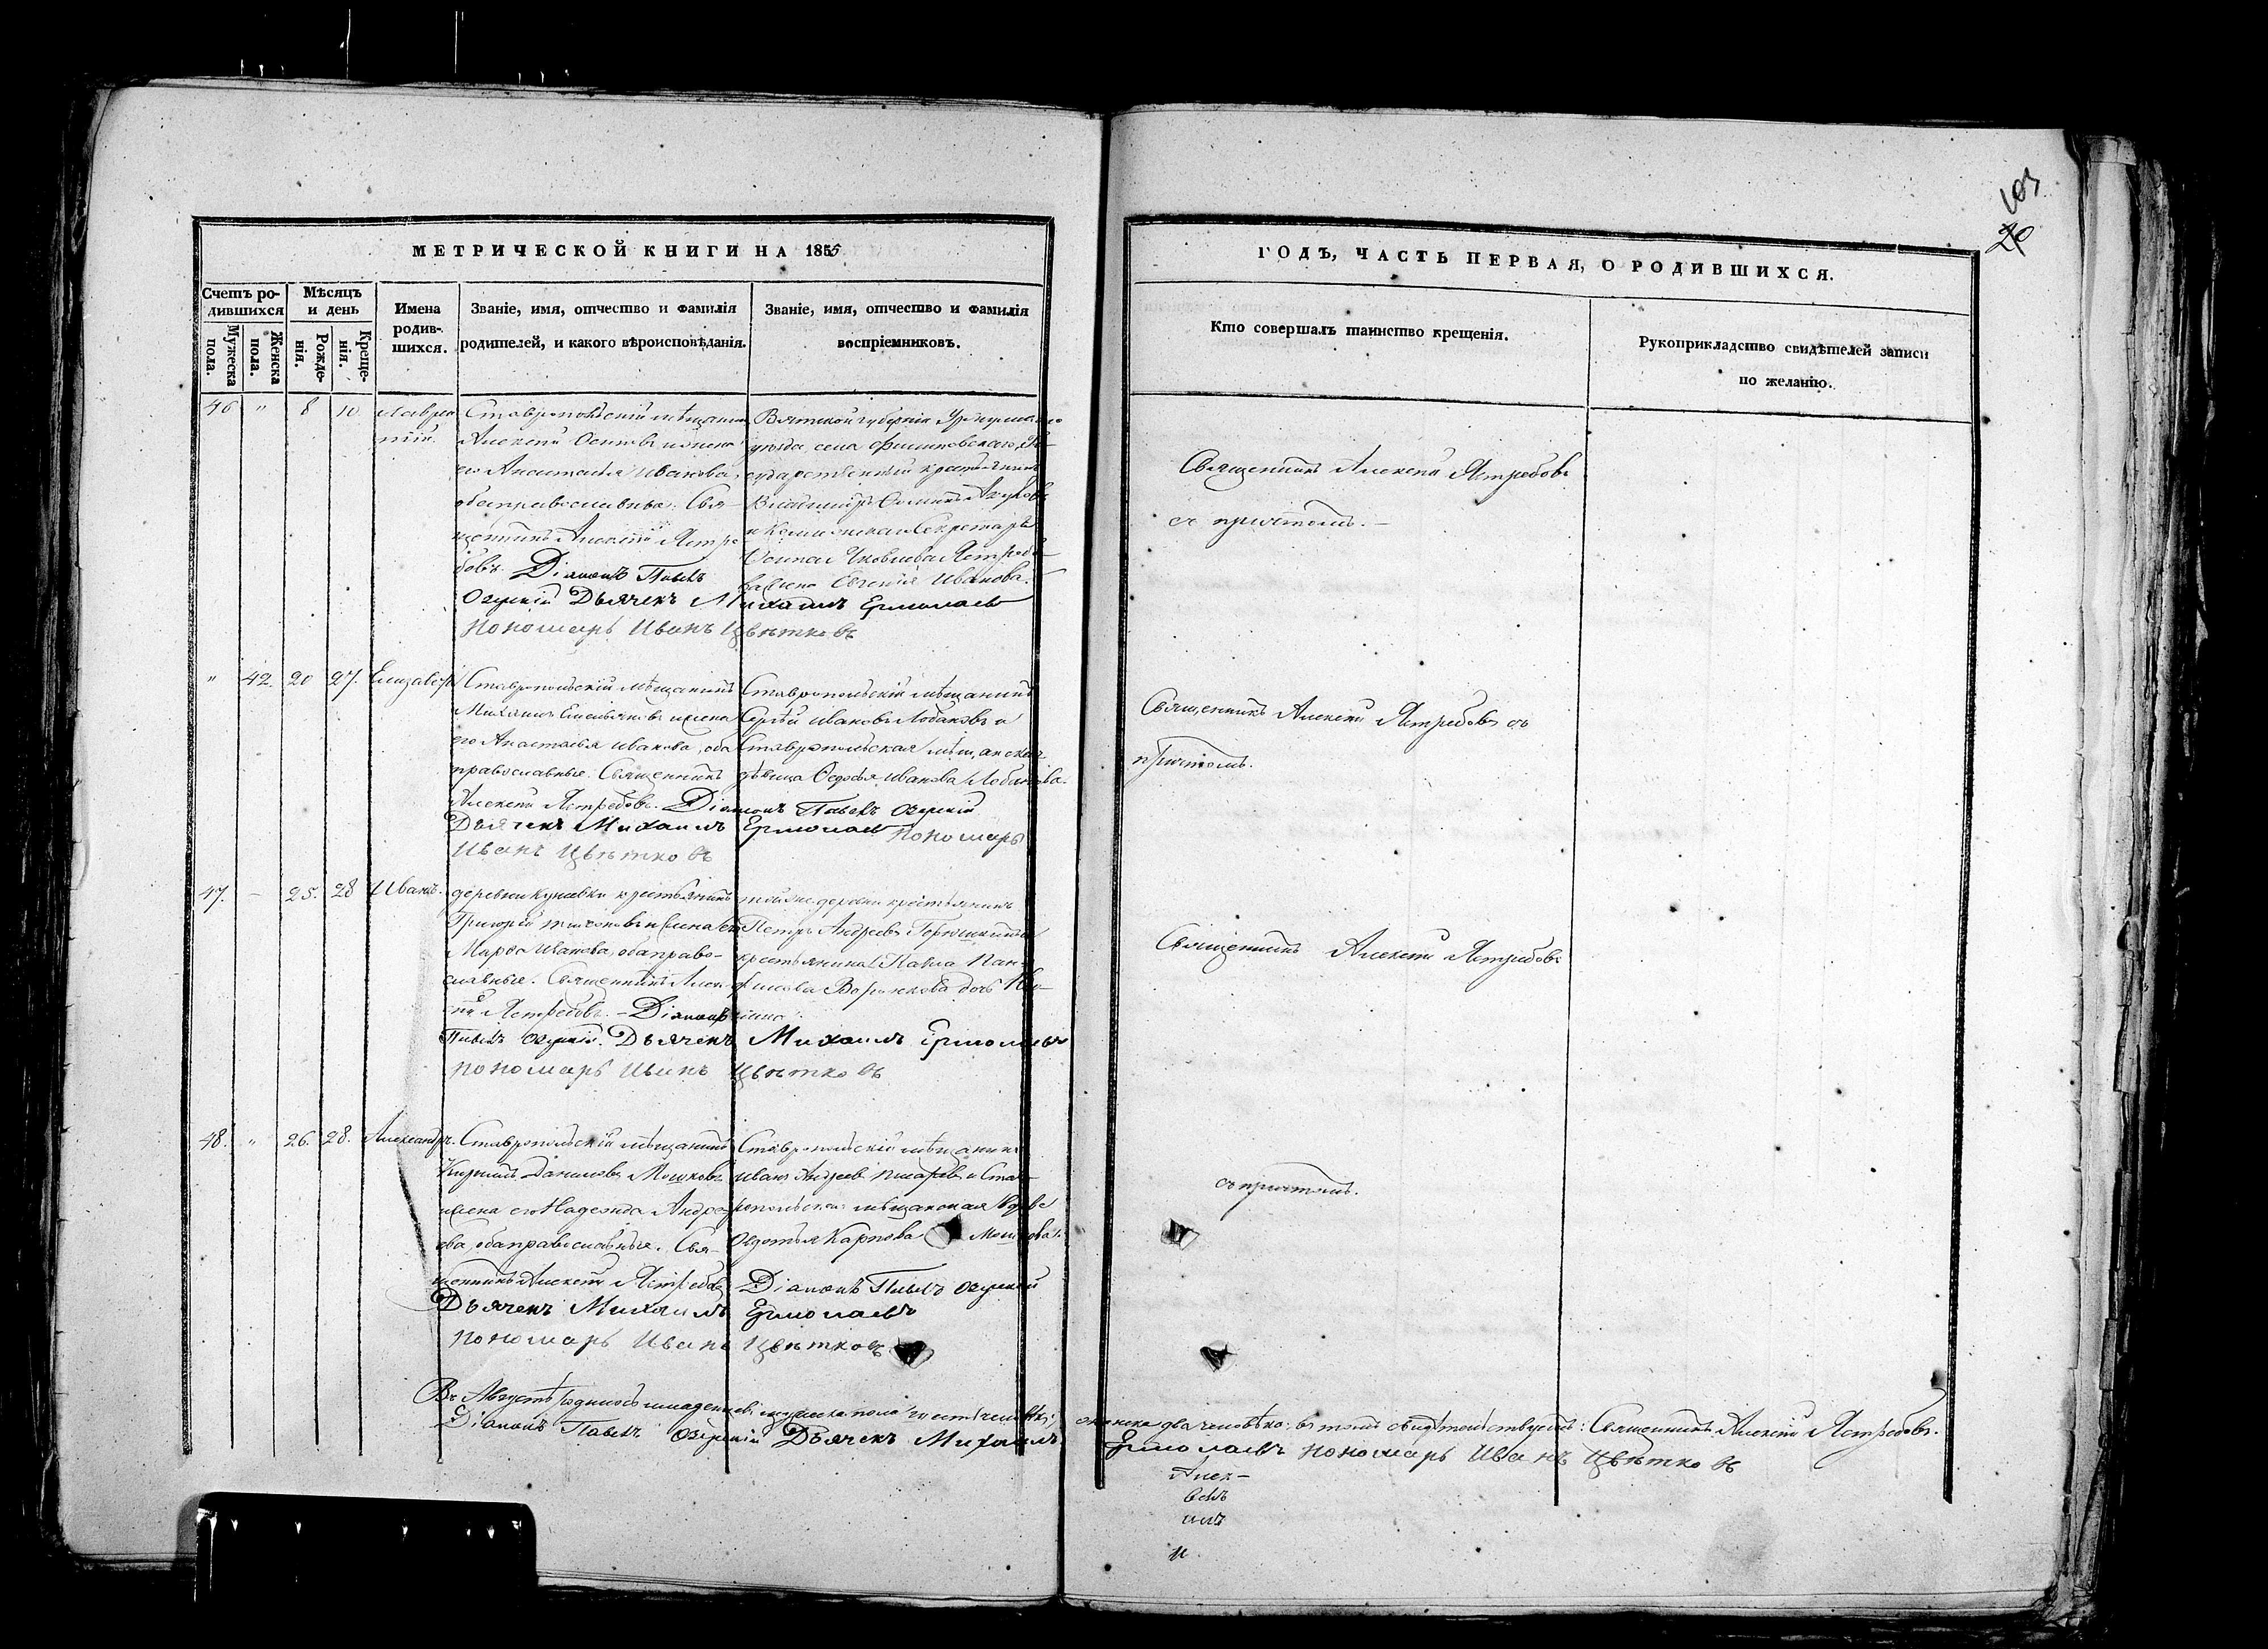 103
20
МЕТРИЧЕСКОЙ КНИГИ НА 1855
ГОДЪ, ЧАСТЬ ПЕРВАЯ, О РОДИВШИХСЯ.
Счетъ ро-
дившихся
Мужеска пола.
Женска пола.
Мѣсяцъ
и день
Рожде-
нія.
Креще-
нія.
Имена
родив-
шихся.
Званіе, имя, отчество и фамилія
родителей, и какого вѣроисповѣданія.
Званіе, имя, отчество и фамилія
воспріемниковъ.
Кто совершалъ таинство крещенія.
Рукоприкладство свидѣтелей записи
по желанію.
46 " 8 10 Лаврен
тій
Ставропольскій мѣщанинъ
Алексей Осиповъ и жена
его Анастасія Иванова,
оба православные. Свя-
щенникъ Алексей Ястре
бовъ. Діаконъ Павелъ
Озеркій Дьячекъ Михаилъ Ермолаевъ
пономарь Иванъ Цвѣтковъ
Вятской губерніи
уѣзда села Го-
сударственный крестьянинъ
и Коллежскаго Секретаря
Осипа Яковлева Ястребо-
ва жена Евгенія Иванова.
Священникъ Алексей Ястребовъ
съ причтомъ. —
" 42. 20 27. Елизавета
Ставропольскій мѣщанинъ
Михаилъ Емельяновъ и жена
его Анастасья Иванова, оба
православные. Священникъ
Алексей Ястребовъ. Діаконъ Павелъ Озерскій
Дьячекъ Михаилъ Ермолаевъ пономарь
Иванъ Цвѣтковъ
Ставропольскій мѣщанинъ
Сергѣй Ивановъ Лобановъ и
Ставропольская мѣщанская
дѣвица Ѳедосья Иванова Лобанова.
Священникъ Алексей Ястребовъ съ
причтомъ.
47. — 25. 28 Иванъ.
деревни Кунеевки крестьянинъ
Григорій Тихоновъ и жена его
Марѳа Иванова, оба право-
славные. Священникъ Алек-
сей Ястребовъ. — Діаконъ
Павелъ Озерскій. Дьячекъ Михаилъ Ермолаевъ
пономарь Иванъ Цвѣтковъ
той же деревни крестьянинъ
Петръ Андреевъ
крестьянина Павла Пан-
филова Воронкова дочь
Священникъ Алексей Ястребовъ
48. " 26. 28. Александръ.
Ставропольскій мѣщанинъ
Кирилъ Даниловъ Мошковъ
и жена его Надежда Андре
ева, оба православные. Свя-
щенникъ Алексей Ястребовъ
Діаконъ Павелъ Озерскій
Дьячекъ Михаилъ Ермолаевъ
пономарь Иванъ Цвѣтковъ
Ставропольскій мѣщанинъ
Иванъ Андреевъ и Став
ропольская мѣщанская вдова
Авдотья Карпова Мошкова.
съ причтомъ.
Въ Августѣ родилось младенцевъ мужеска пола шесть человѣкъ, а женска два человѣка; въ томъ свидѣтельствуемъ: Священникъ Алексей Ястребовъ.
Діаконъ Павелъ Озерскій Дьячекъ Михаилъ Ермолаевъ пономарь Иванъ Цвѣтковъ